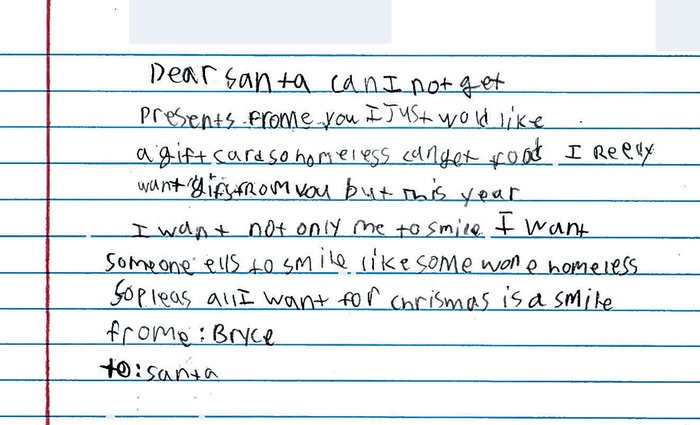 Dear santa can I not get
presents frome you I Just wold like
a gift card so homeless can get food I Reely
want gifts FROM you but this year
I want not only me to smile I want
Someone ells to smile like some wone homeless
So pleas all I want for chrismas is a smile
frome: Bryce
to: santa